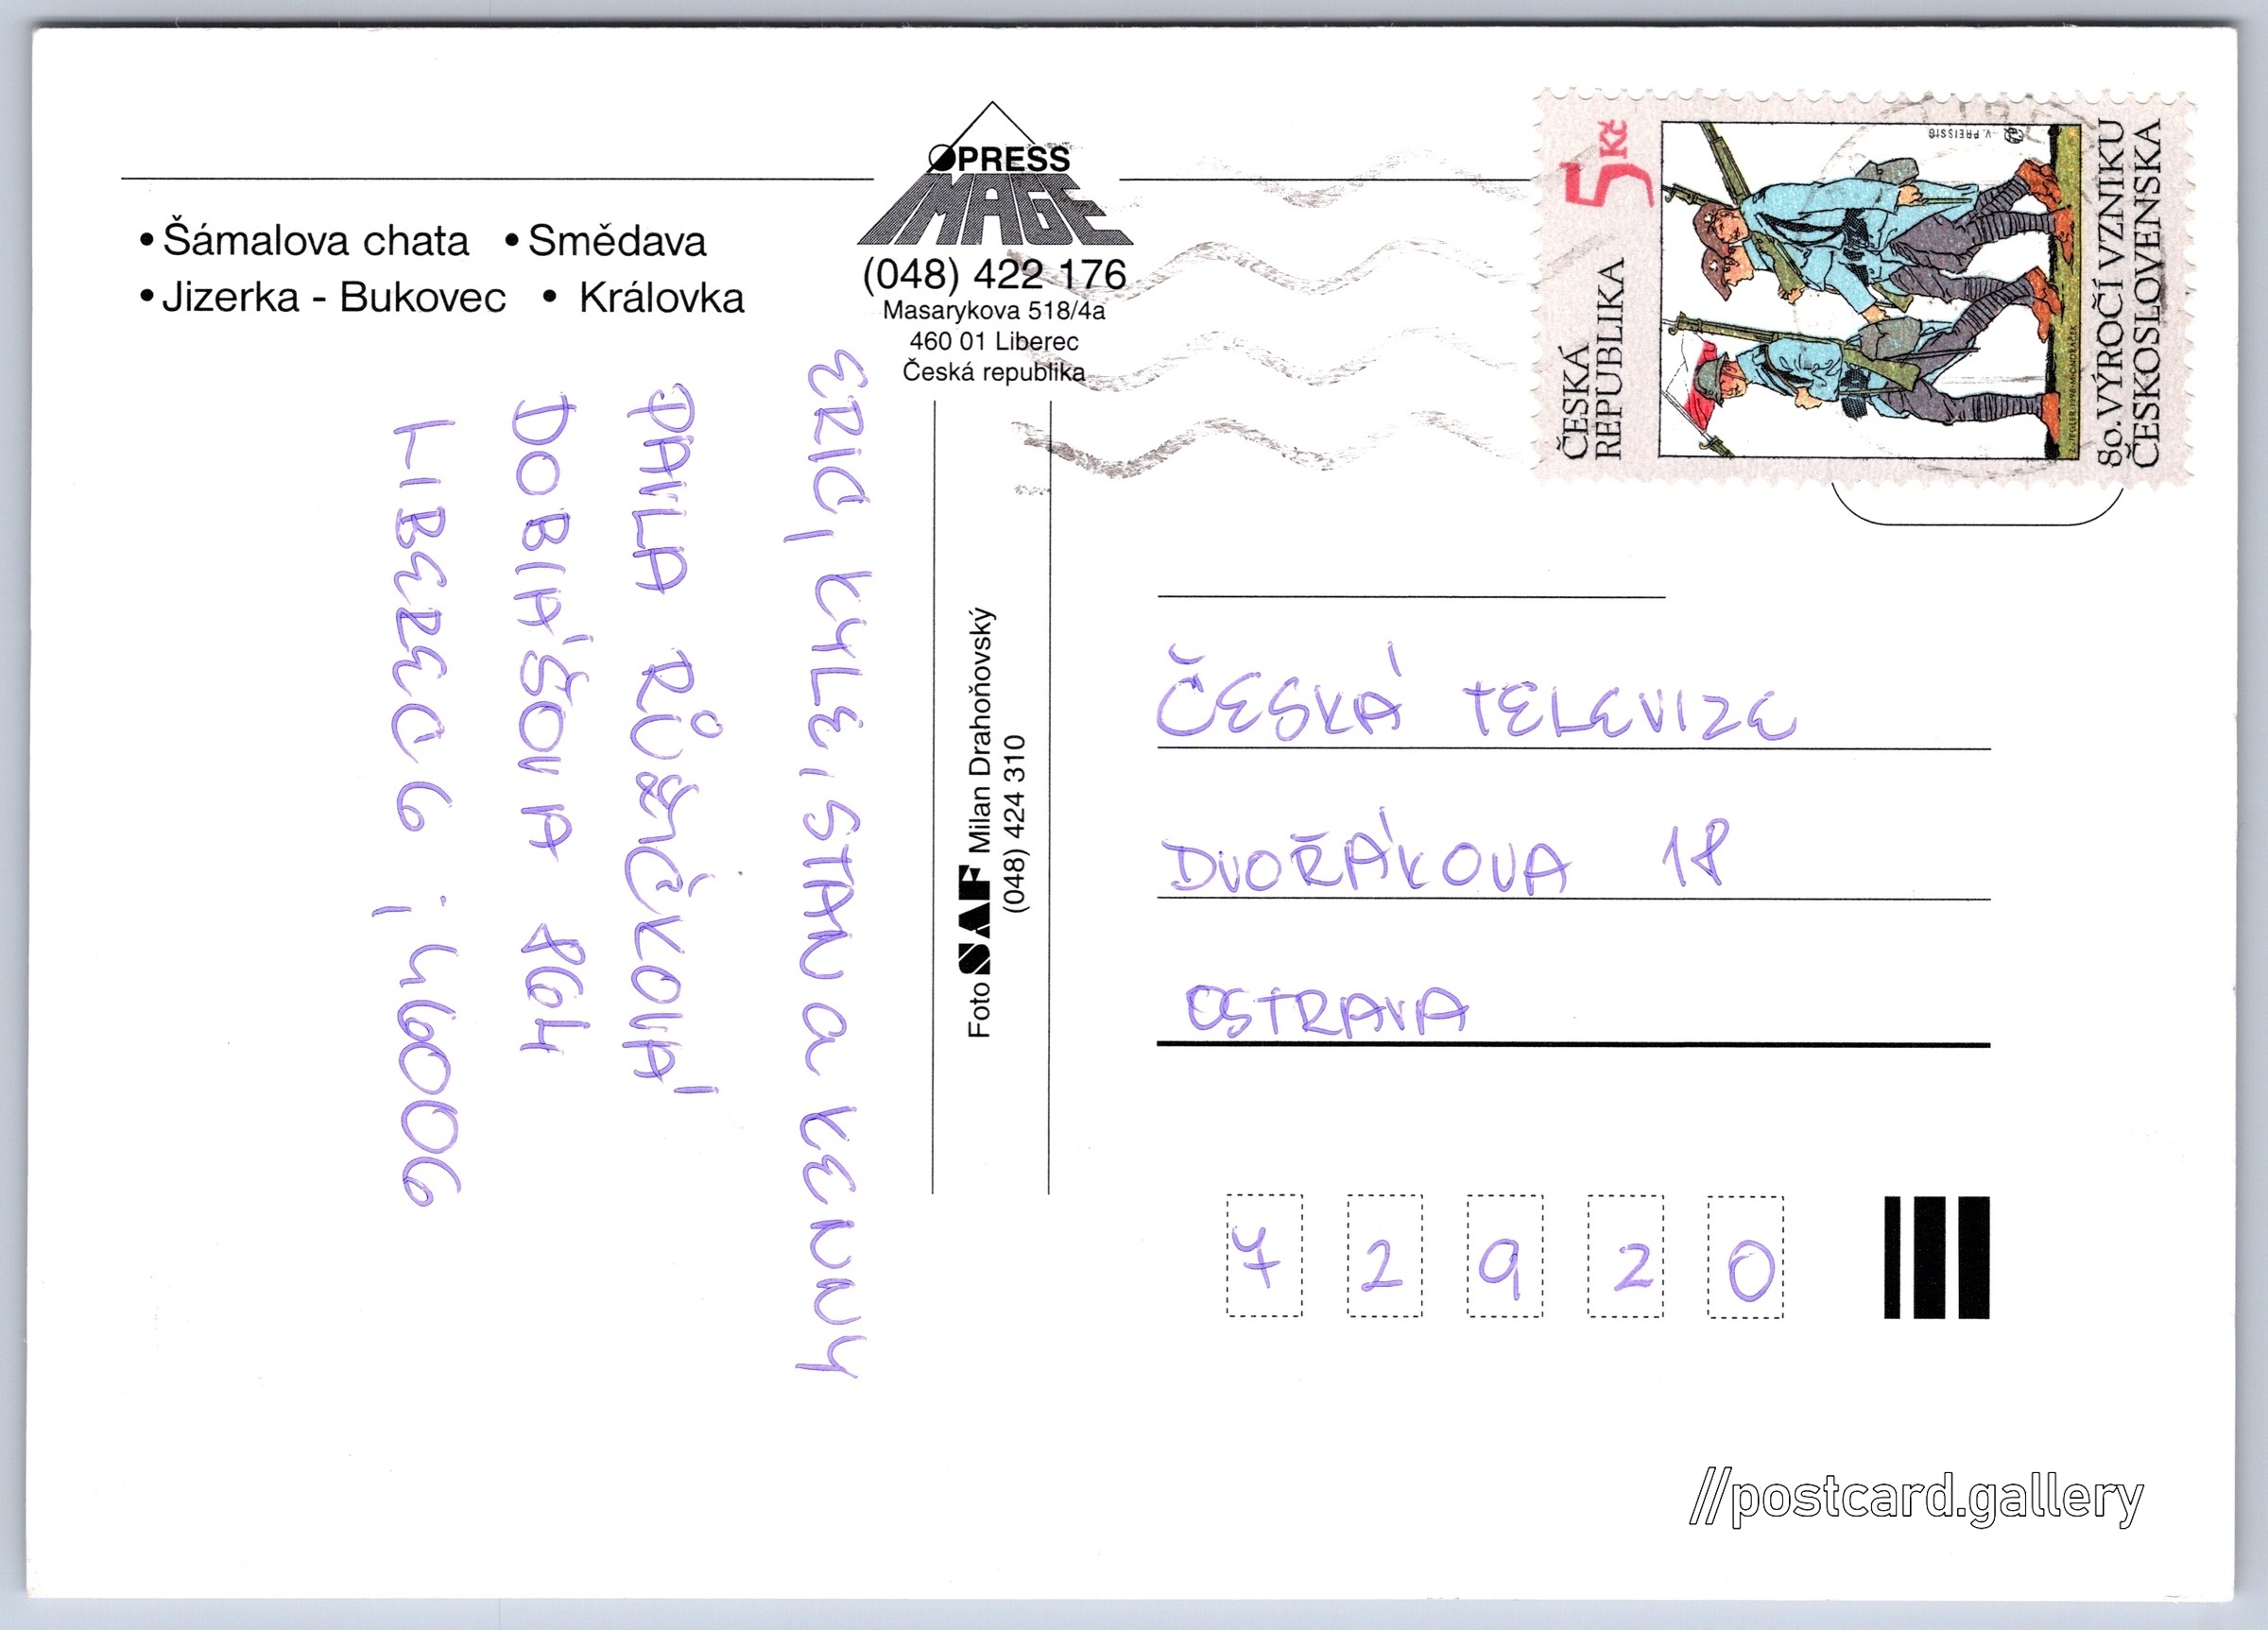 PRESS
IMAGE
(048) 422 176
Masarykova 518/4a
460 01 Liberec
Česká republika
• Šámalova chata • Smědava
• Jizerka - Bukovec • Královka
ERIC, KYLE, STAN a KENNY
PAVLA RŮŽIČKOVÁ
DOBIÁŠOVA 864
LIBEREC 6 ; 46006
Foto SAF Milan Drahoňovský
(048) 424 310
5 Kč
ČESKÁ
REPUBLIKA
V. PREISSIG
80. VÝROČÍ VZNIKU
ČESKOSLOVENSKA
ČESKÁ TELEVIZE
DVOŘÁKOVA 18
OSTRAVA
7 2 9 2 0
//postcard.gallery